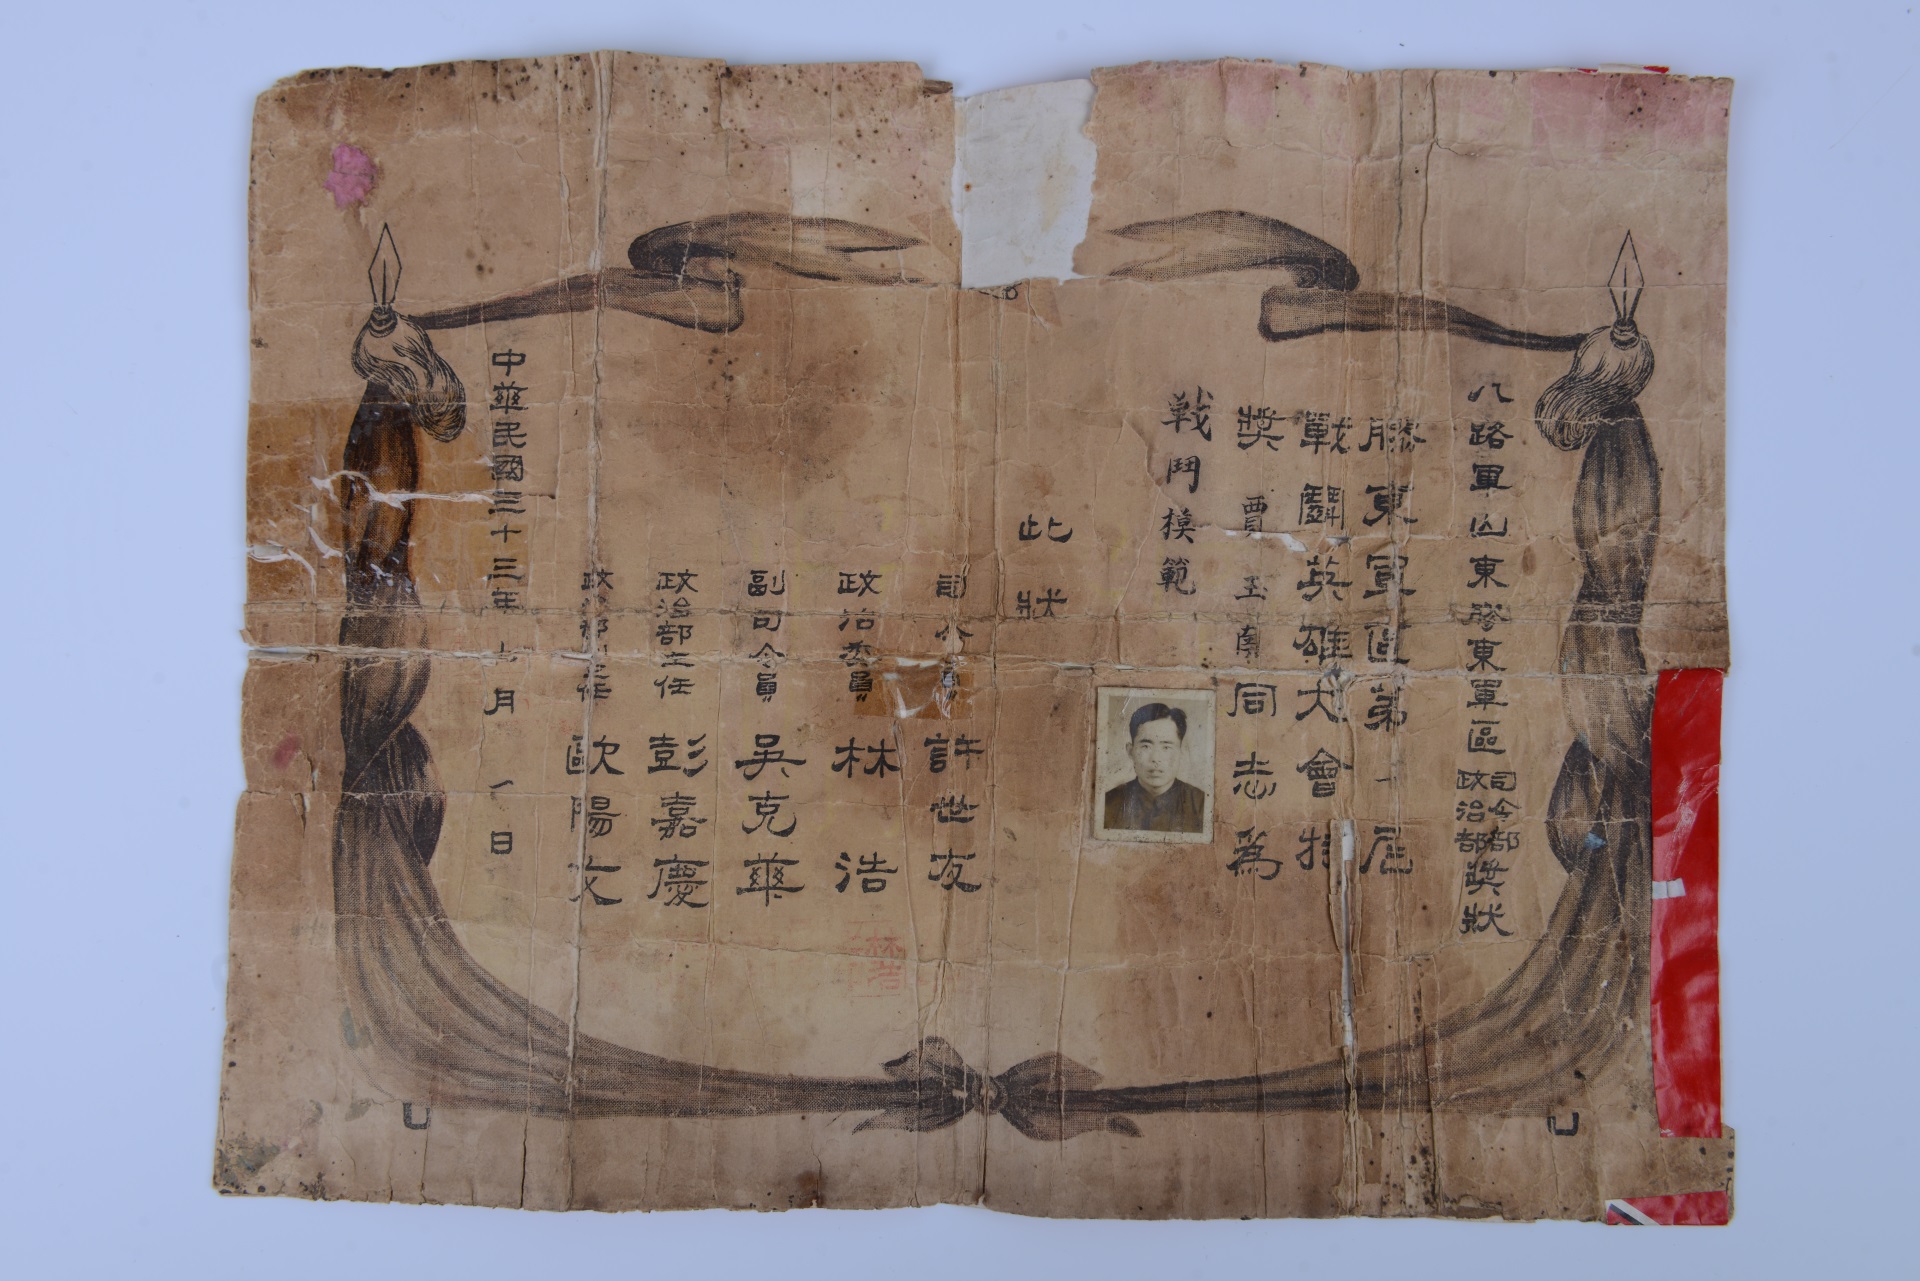 八路軍山東膠東軍區司令部政治部獎狀
膠東軍區第一屆
戰鬭英雄大會特
獎 賈玉 同志為
戰鬥模範
此狀
司令員 許世友
政治委員 林浩
副司令員 吳克華
政治部主任 彭嘉慶
政治部副主任 歐陽文
中華民國三十三年 月 日
林浩